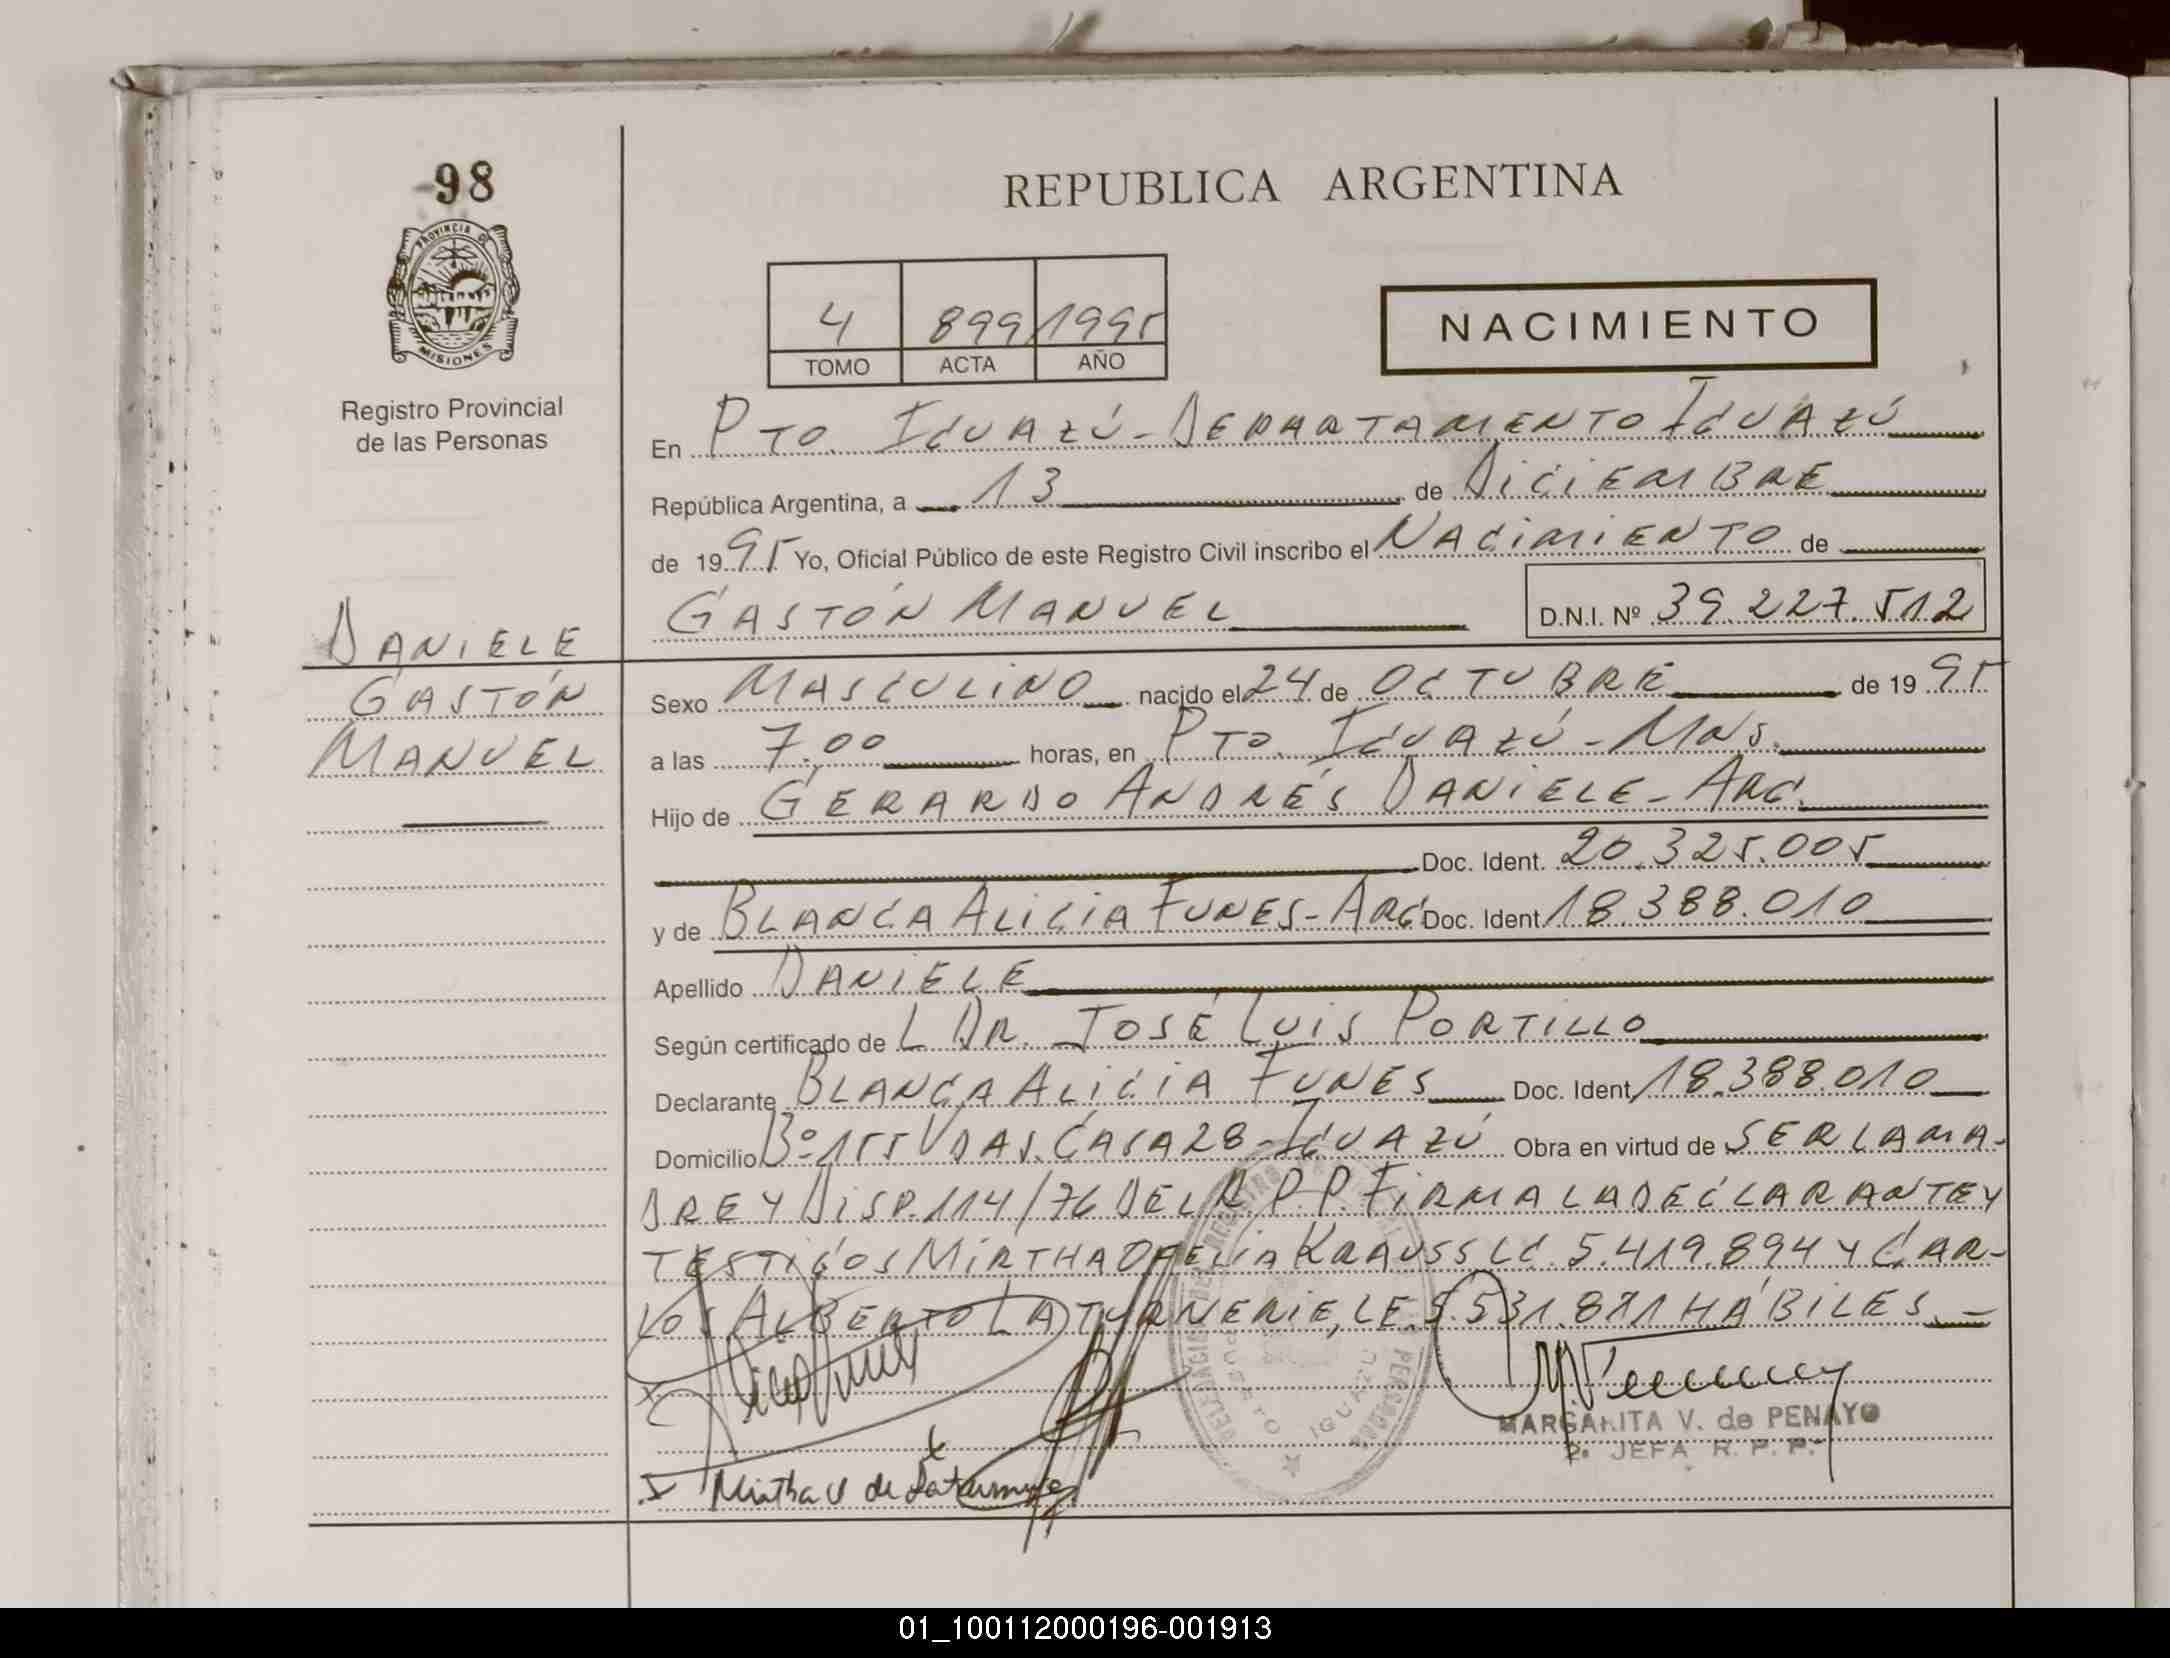 98
PROVINCIA D
MISIONES
Registro Provincial
de las Personas
REPUBLICA ARGENTINA
4 899 1995
TOMO ACTA AÑO
NACIMIENTO
En PTO. IGUAZÚ - DEPARTAMENTO IGUAZÚ
República Argentina, a 13 de DICIEMBRE
de 1995 Yo, Oficial Público de este Registro Civil inscribo el NACIMIENTO de
GASTÓN MANUEL D.N.I. Nº 39.227.512
DANIELE
GASTÓN
MANUEL
Sexo MASCULINO nacido el 24 de OCTUBRE de 1995
a las 7,00 horas, en PTO. IGUAZÚ - MNS.
Hijo de GERARDO ANDRÉS DANIELE - ARG.
Doc. Ident. 20.325.005
y de BLANCA ALICIA FUNES - ARG Doc. Ident. 18.388.010
Apellido DANIELE
Según certificado de L DR. JOSÉ LUIS PORTILLO
Declarante BLANCA ALICIA FUNES Doc. Ident. 18.388.010
Domicilio Bº 155 VDAS. CASA 28 - IGUAZÚ Obra en virtud de SER LA MA-
DRE Y DISP. 114/76 DEL R.P.P. FIRMA LA DECLARANTE Y
TESTIGOS MIRTHA OFELIA KRAUSS LC. 5.419.894 Y CAR-
LOS ALBERTO LATURNERIE, LE. 5.531.871 HÁBILES. -
MARGARITA V. de PENAYO
2. JEFA R. P. P.
Mirtha
PUERTO IGUAZU
01_100112000196-001913